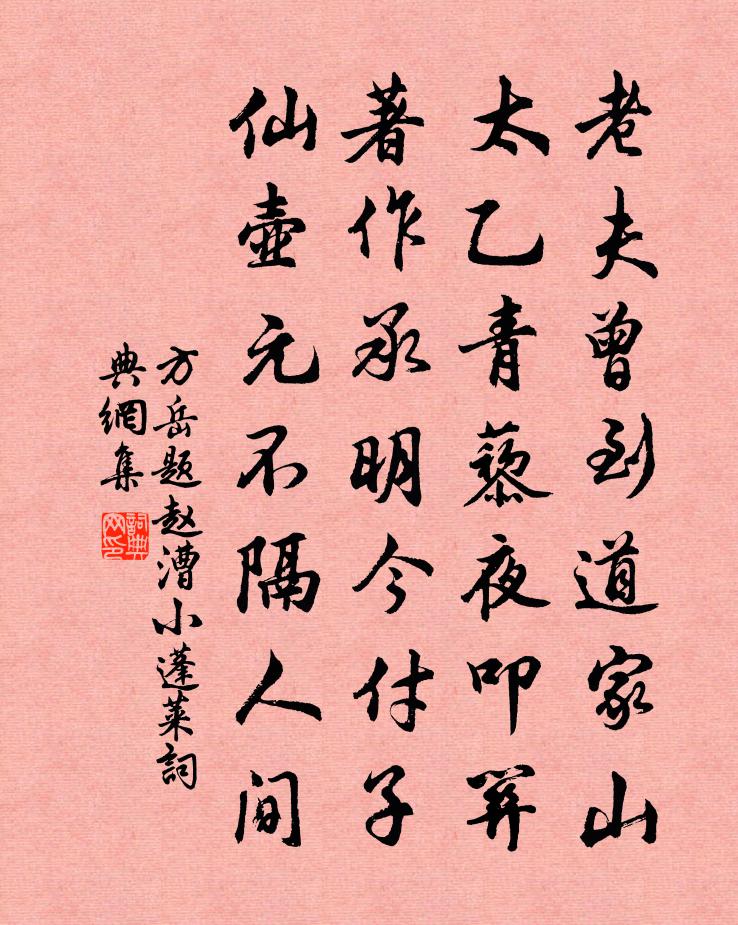 老夫曾到道家山
太乙青藜夜叩關
著作承明今付子
仙壺元不隔人間
方岳题赵漕小蓬莱詞
典網集
詞典
网印